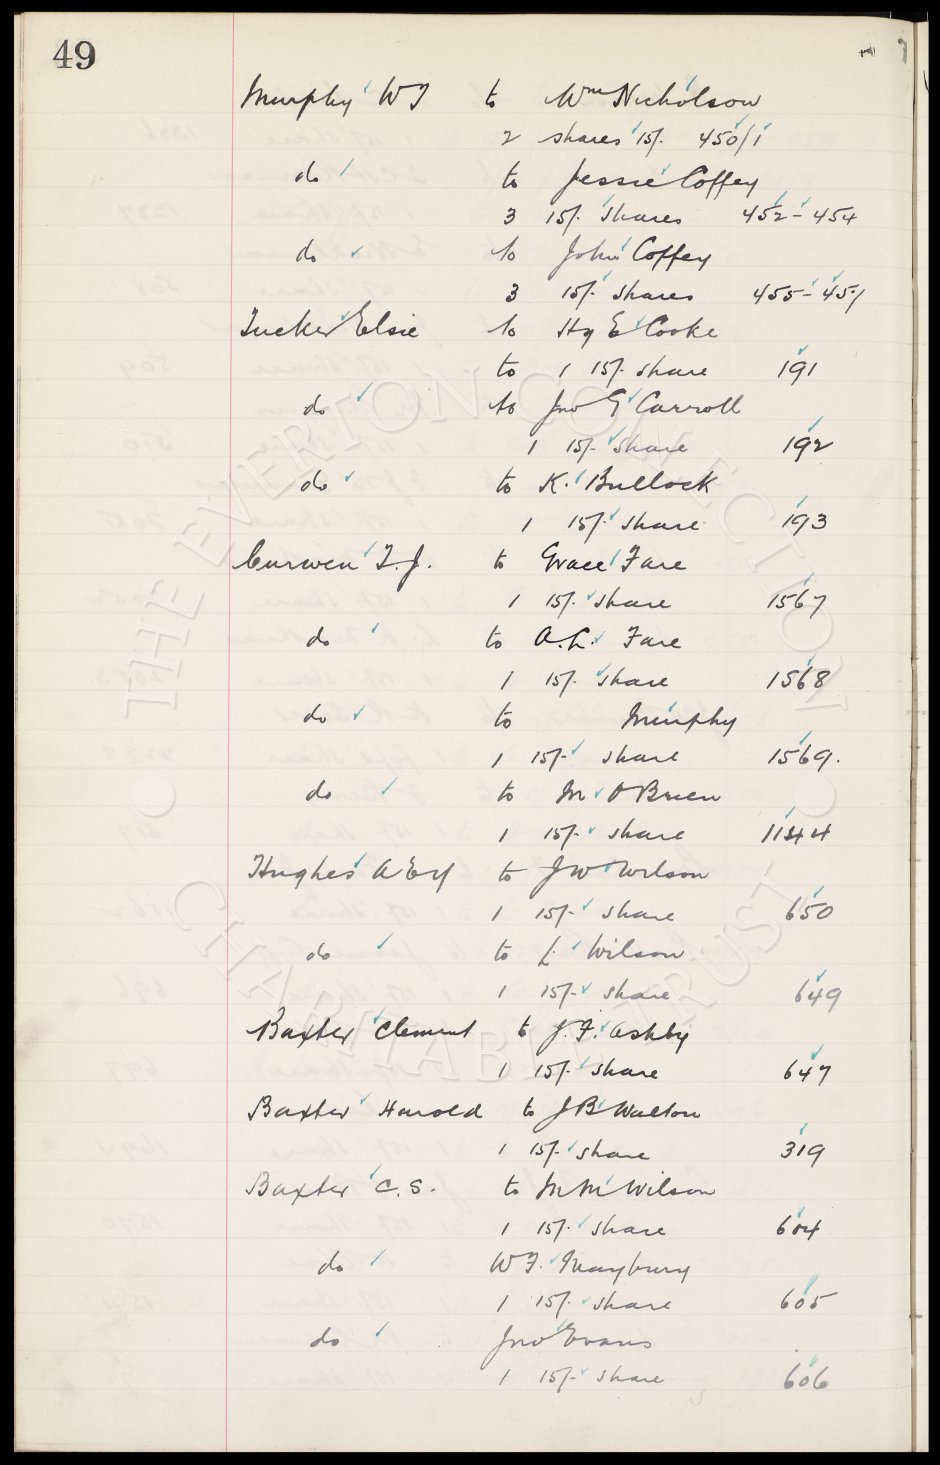 49
Murphy W J to Wm Nicholson
2 shares 15/- 450/1
do to Jessie Coffey
3 15/- shares 452-454
do to John Coffey
3 15/- shares 455-457
Tucker Elsie to Hy E Cooke
to 1 15/- share 191
do to Jno G Carroll
1 15/- share 192
do to K. Bullock
1 15/- share 193
Curwen T. J. to Grace Fare
1 15/- share 1567
do to A. L. Fare
1 15/- share 1568
do to Murphy
1 15/- share 1569.
do to M O Brien
1 15/- share 1144
Hughes A to J W Wilson
1 15/- share 650
do to L Wilson
1 15/- share 649
Baxter Clement to J. F. Ashby
1 15/- share 647
Baxter Harold to J B Walton
1 15/- share 319
Baxter C. S. to M M Wilson
1 15/- share 604
do W F. Maybury
1 15/- share 605
do Jno Evans
1 15/- share 606
© THE EVERTON COLLECTION
CHARITABLE TRUST ©